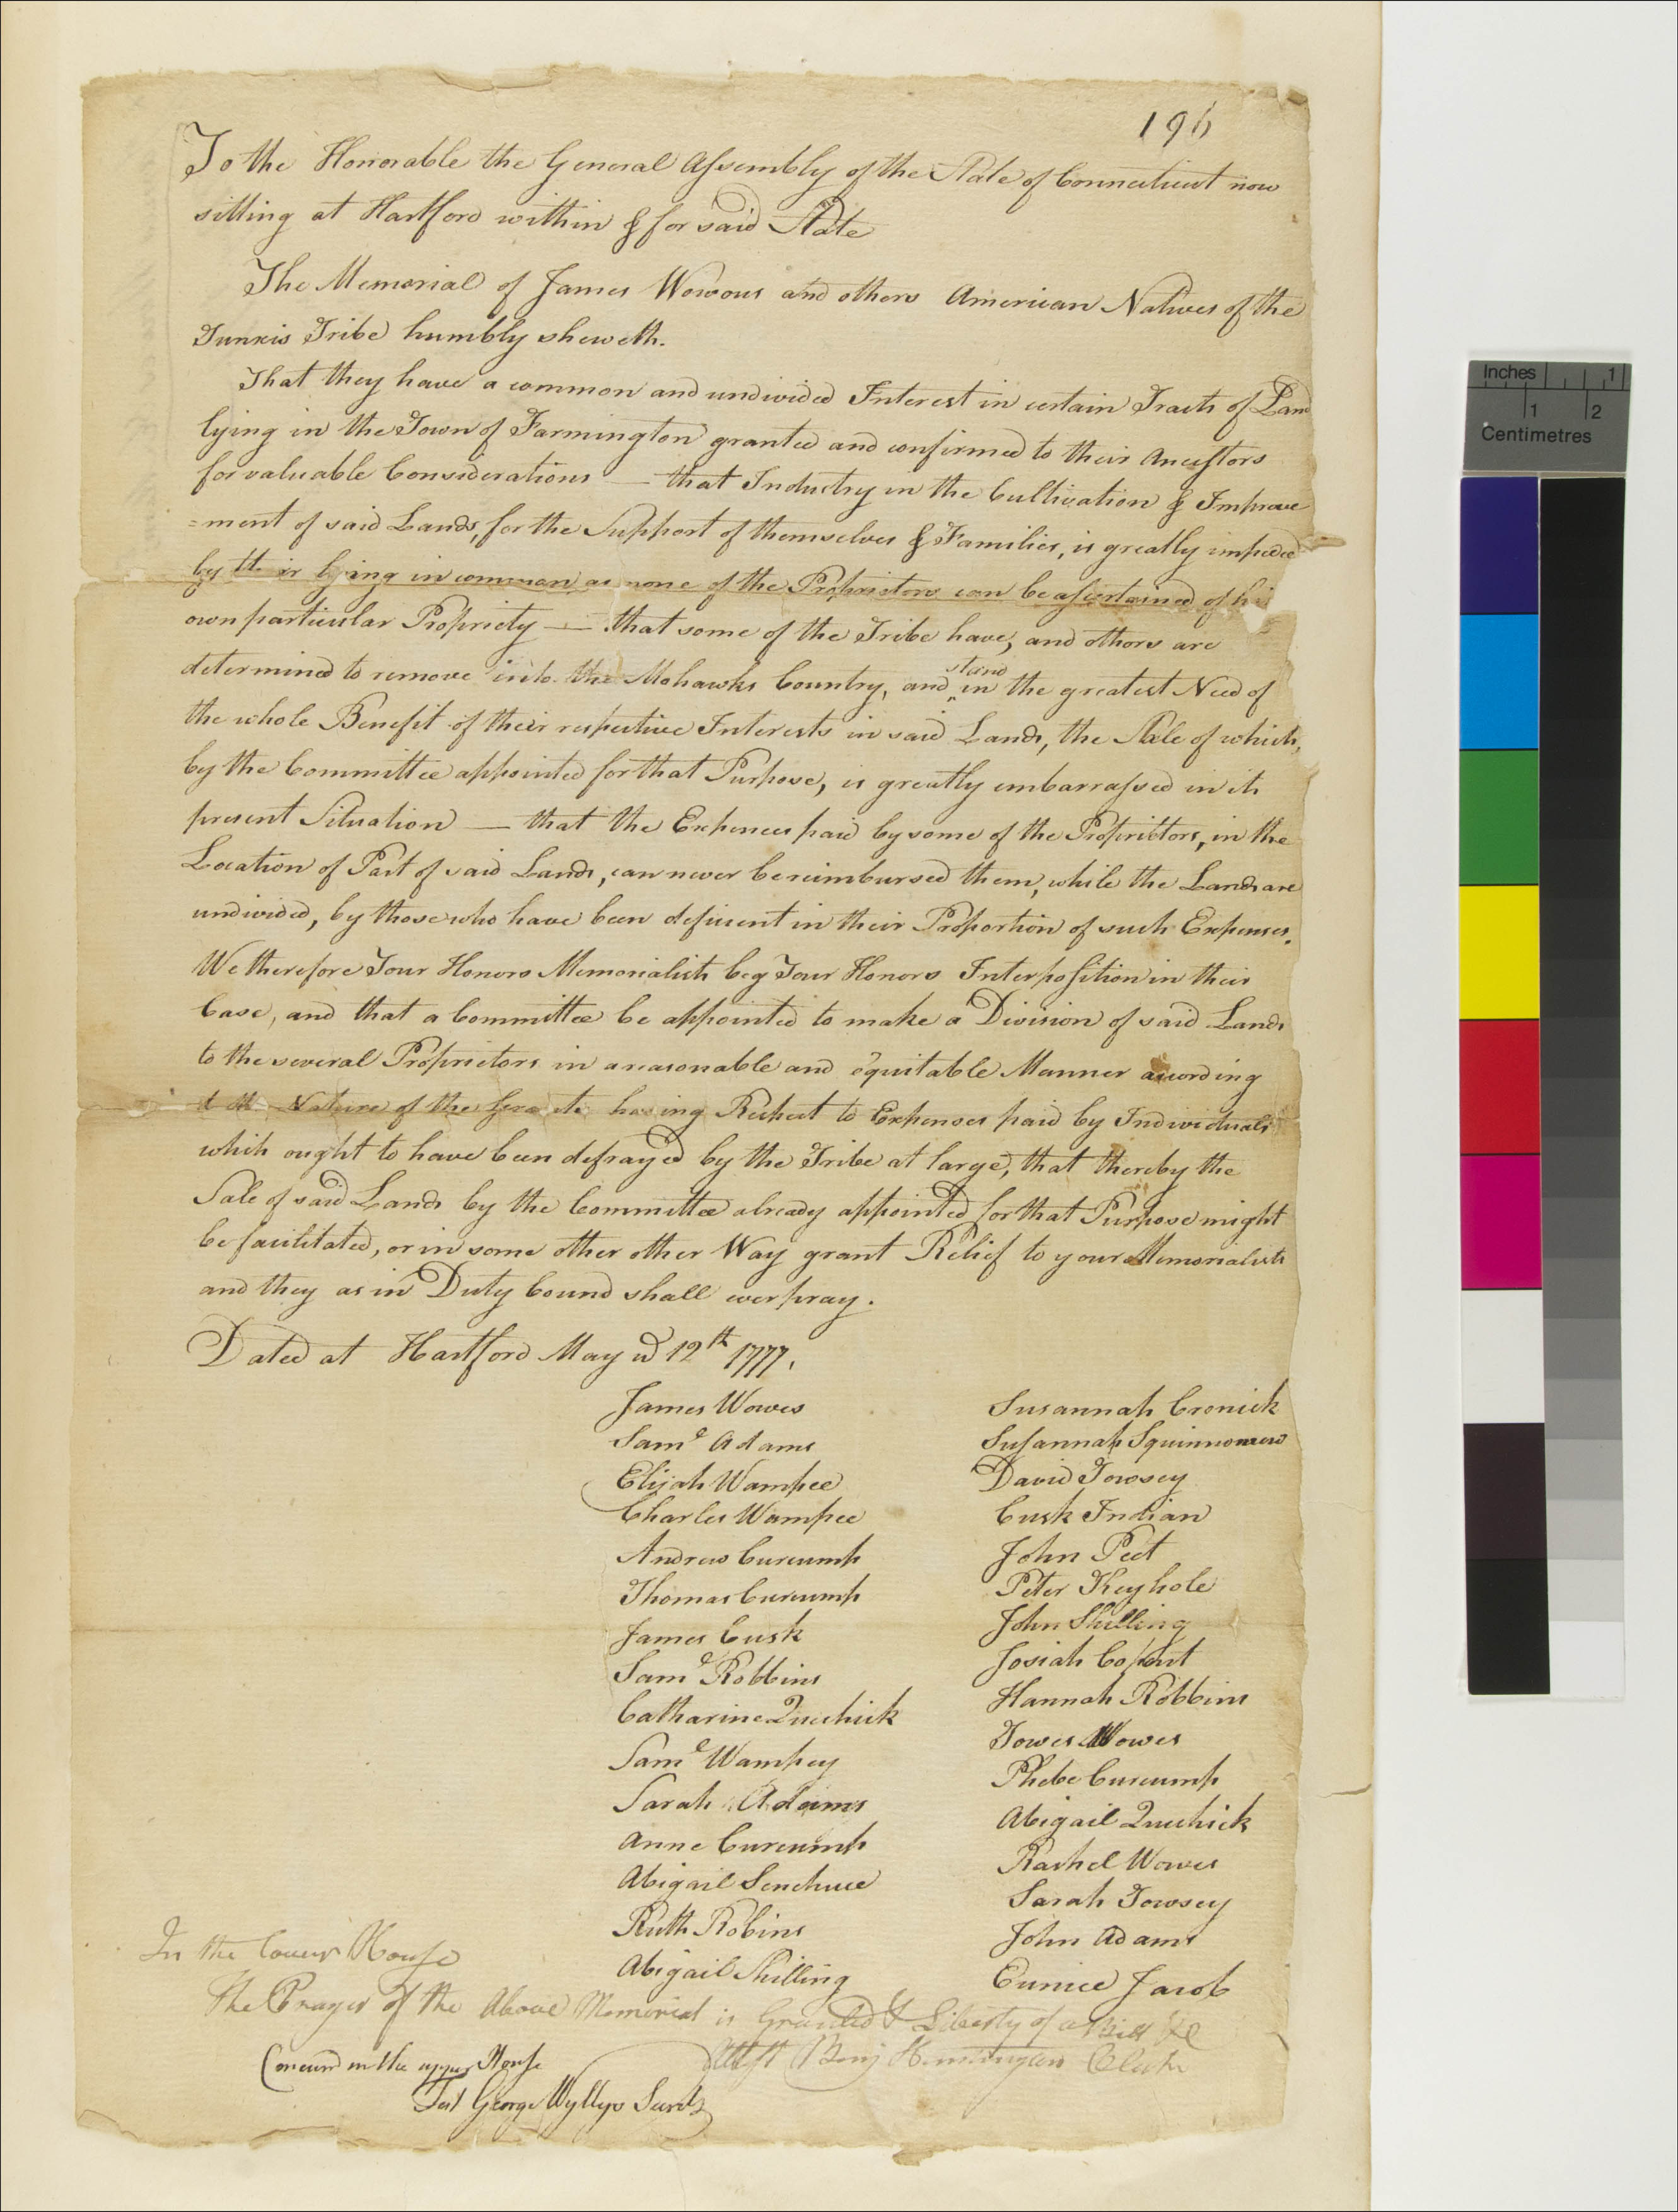 196
To the Honorable the General Assembly of the State of Connecticut now
sitting at Hartford within & for said State
The Memorial of James Wowous and others American Natives of the
Tunxis Tribe humbly sheweth.
That they have a common and undivided Interest in certain Tracts of Land
lying in the Town of Farmington granted and confirmed to their Ancestors
for valuable Considerations — that Industry in the Cultivation & Improve
=ment of said Lands, for the Support of themselves & Families, is greatly impeded
by their lying in common as none of the Proprietors can be ascertained of his
own particular Propriety — that some of the Tribe have, and others are
determined to remove into the Mohawks Country, and stand in the greatest Need of
the whole Benefit of their respective Interests in said Lands, the Sale of which,
by the Committee appointed for that Purpose, is greatly embarrassed in its
present Situation — that the Expences paid by some of the Proprietors, in the
Location of Part of said Lands, can never be reimbursed them, while the Lands are
undivided, by those who have been deficient in their Proportion of such Expenses.
We therefore Your Honors Memorialists beg Your Honors Interposition in their
Case, and that a Committee be appointed to make a Division of said Lands
to the several Proprietors in a reasonable and equitable Manner according
to the Nature of the Grants having Respect to Expenses paid by Individuals
which ought to have been defrayed by the Tribe at large, that thereby the
Sale of said Lands by the Committee already appointed for that Purpose might
be facilitated, or in some other other Way grant Relief to your Memorialists
and they as in Duty bound shall ever pray.
Dated at Hartford May 12th 1777.
James Wowes
Saml Adams
Elijah Wampee
Charles Wampee
Andrew Curcump
Thomas Curcump
James Cusk
Saml Robbins
Catharine Quechick
Saml Wampey
Sarah Adams
Anne Curcump
Abigail Senchuce
Ruth Robins
Abigail Shilling
Susannah Cronick
Susannah Squinnomow
David Towsey
Cusk Indian
John Peet
Peter Keyhole
John Shilling
Josiah
Hannah Robbins
Towes Wowes
Phebe Curcump
Abigail Quechick
Rachel Wowes
Sarah Towsey
John Adams
Eunice Jacob
In the Lower House
The Prayer of the Above Memorial is Granted & Liberty of a Bill &c
Attest Benj Clerk
Concurd in the upper House
Test George Wyllys Secrety
Inches 1
1 2
Centimetres